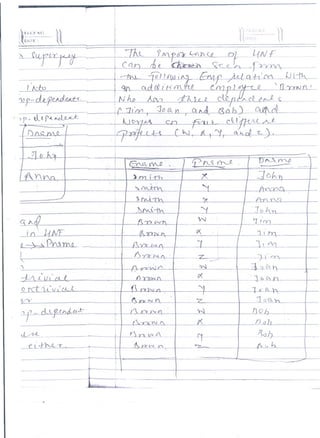 Superkey
into
op-dependent
op-dependent
Dname
John
Anna
and
in 4NF
Pname
trivial
or trivial
or
op-dependent
either
The Importance of 4NF
Can be Seen from
the following Emp relation with
an additional employee 'Brown'
Who has three dependents
(Jim, Joan, and Bob) and
Works on four different
projects (W, X, Y, and Z).
Ename Pname Dname
Smith X John
Smith Y Anna
Smith X Anna
Smith Y John
Brown W Jim
Brown X Jim
Brown Y Jim
Brown Z Jim
Brown W Joan
Brown X Joan
Brown Y Joan
Brown Z Joan
Brown W Bob
Brown X Bob
Brown Y Bob
Brown Z Bob